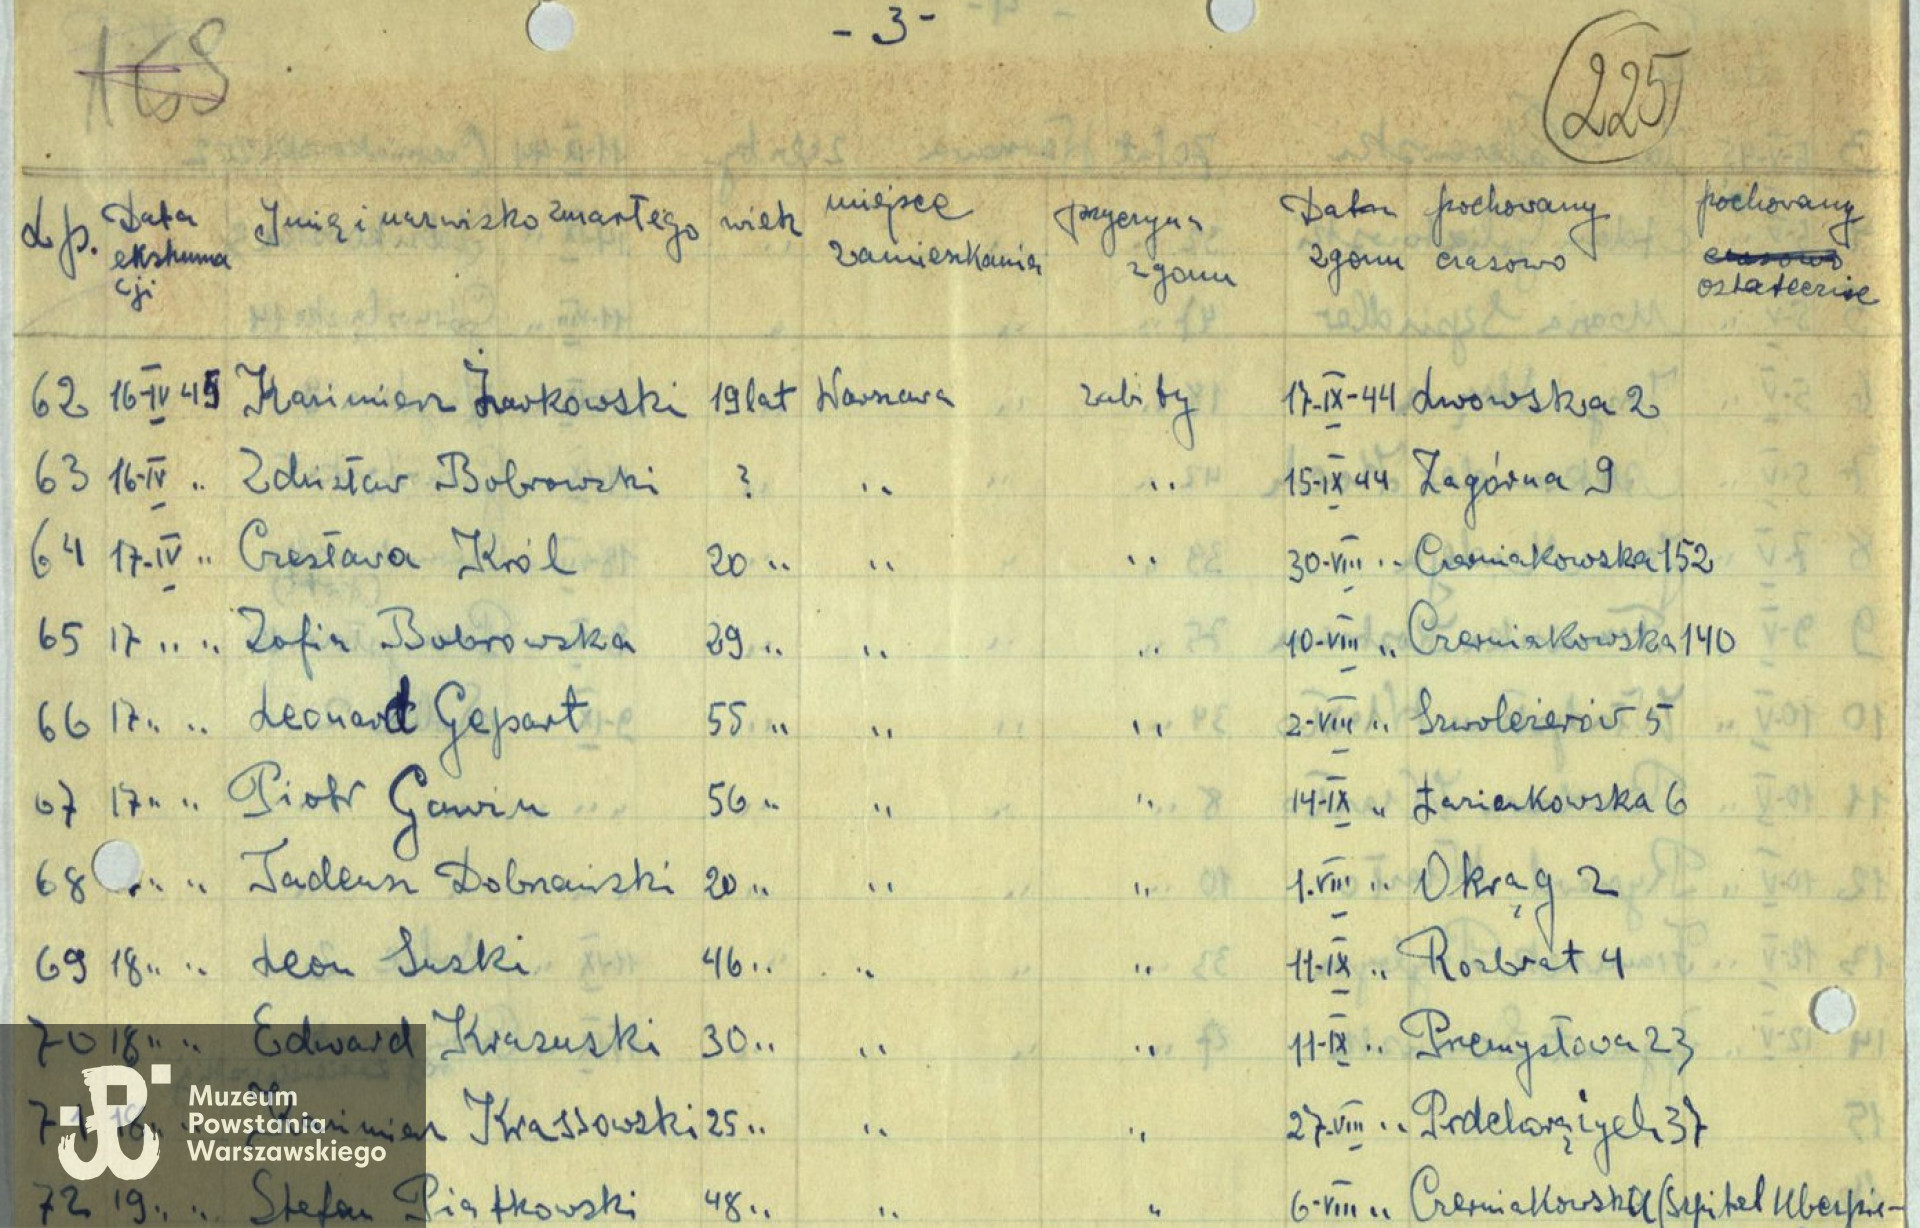 - 3 -
168
225
L.p. Data ekshumacji Imię i nazwisko zmarłego wiek miejsce zamieszkania przyczyna zgonu Data zgonu pochowany czasowo pochowany czasowo ostatecznie
62 16-IV 45 Kazimierz Żurkowski 19 lat Warszawa zabity 17-IX-44 Lwowska 2
63 16-IV " Zdzisław Bobrowski ? " " 15-IX 44 Zagórna 9
64 17-IV " Czesława Król 20 " " " 30-VIII " Czerniakowska 152
65 17 " " Zofia Bobrowska 29 " " " 10-VIII " Czerniakowska 140
66 17 " " Leonard Gepart 55 " " " 2-VIII " Szwoleżerów 5
67 17 " " Piotr Gawin 56 " " " 14-IX " Łazienkowska 6
68 " " Tadeusz Dobrzański 20 " " " 1-VIII " Okrąg 2
69 18 " " Leon Suski 46 " " " 11-IX " Rozbrat 4
70 18 " " Edward Krasuski 30 " " " 11-IX " Przemysłowa 23
71 18 " " Kazimierz Krassowski 25 " " " 27-VIII " Podchorążych 37
72 19 " " Stefan Piątkowski 48 " " " 6-VIII " Czerniakowska (Szpital Ubezpie-
Muzeum
Powstania
Warszawskiego